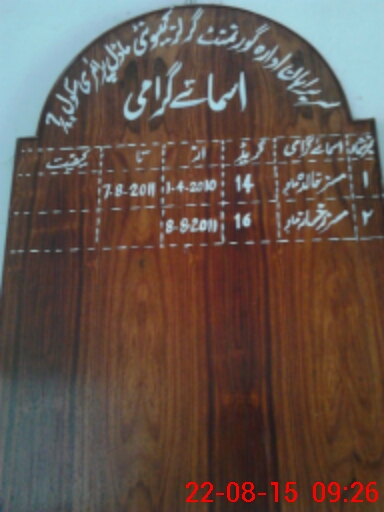 سربراہان ادارہ گورنمنٹ گرلز کمیونٹی ماڈل پرائمری سکول
اسمائے گرامی
نمبرشمار اسمائے گرامی گریڈ از تا کیفیت
۱ مسز خالدہ 14 1-4-2010 7-8-2011
۲ مسز 16 8-8-2011
22-08-15 09:26